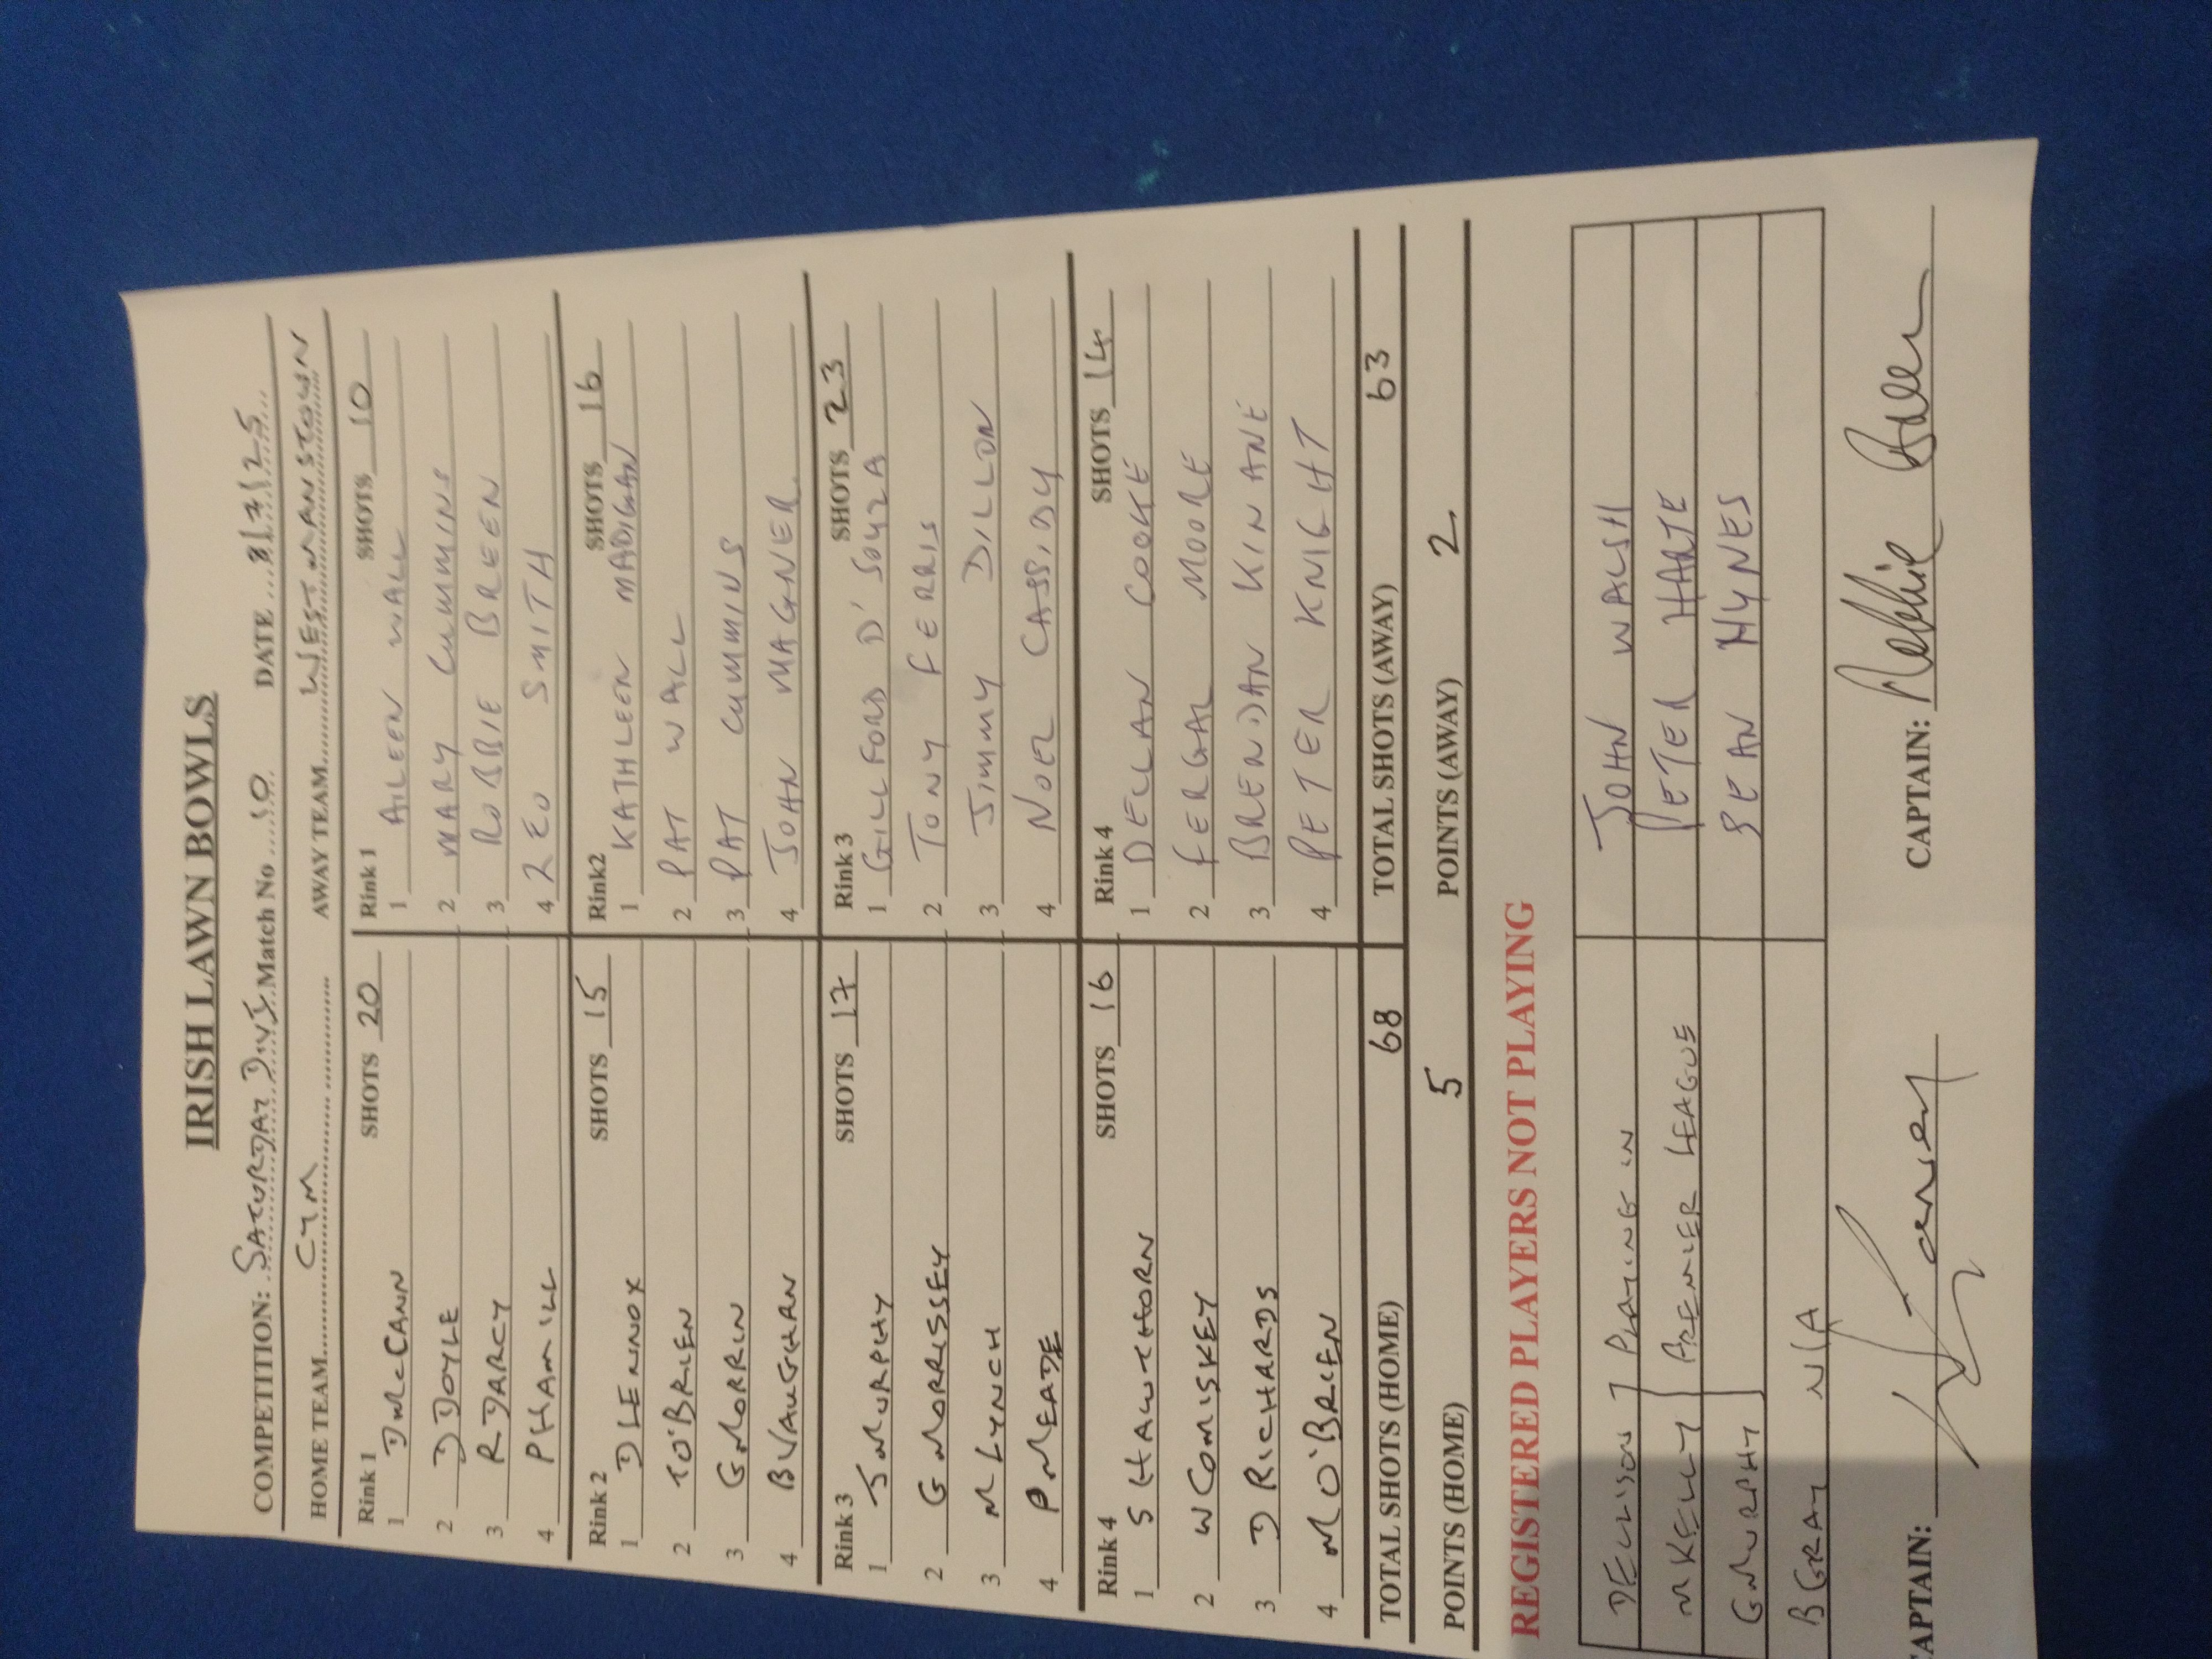 IRISH LAWN BOWLS
COMPETITION: SATURDAY DIV 1 Match No 10 DATE 8/7/25
HOME TEAM CYM AWAY TEAM WESTMANSTOWN
Rink 1 SHOTS 20 Rink 1 SHOTS 10
1 D McCANN 1 AILEEN WALL
2 D DOYLE 2 MARY CUMMINS
3 R DARCY 3 ROBBIE BREEN
4 P HAMILL 4 ZEO SMITH
Rink 2 SHOTS 15 Rink2 SHOTS 16
1 D LENNOX 1 KATHLEEN MADIGAN
2 T O'BRIEN 2 PAT WALL
3 G MORRIN 3 PAT CUMMINS
4 B VAUGHAN 4 JOHN MAGNER
Rink 3 SHOTS 17 Rink 3 SHOTS 23
1 J MURPHY 1 GILLFORD D'SOUZA
2 G MORRISSEY 2 TONY FERRIS
3 M LYNCH 3 JIMMY DILLON
4 P MEADE 4 NOEL CASSIDY
Rink 4 SHOTS 16 Rink 4 SHOTS 14
1 S HAWTHORN 1 DECLAN COOKE
2 W COMISKEY 2 FERGAL MOORE
3 D RICHARDS 3 BRENDAN KINANE
4 M O'BRIEN 4 PETER KNIGHT
TOTAL SHOTS (HOME) 68 TOTAL SHOTS (AWAY) 63
POINTS (HOME) 5 POINTS (AWAY) 2
REGISTERED PLAYERS NOT PLAYING
D ELLISON PLAYING IN JOHN WALSH
M KELLY PREMIER LEAGUE PETER HARTE
G MURPHY SEAN HYNES
B GRAY N/A
CAPTAIN: CAPTAIN: